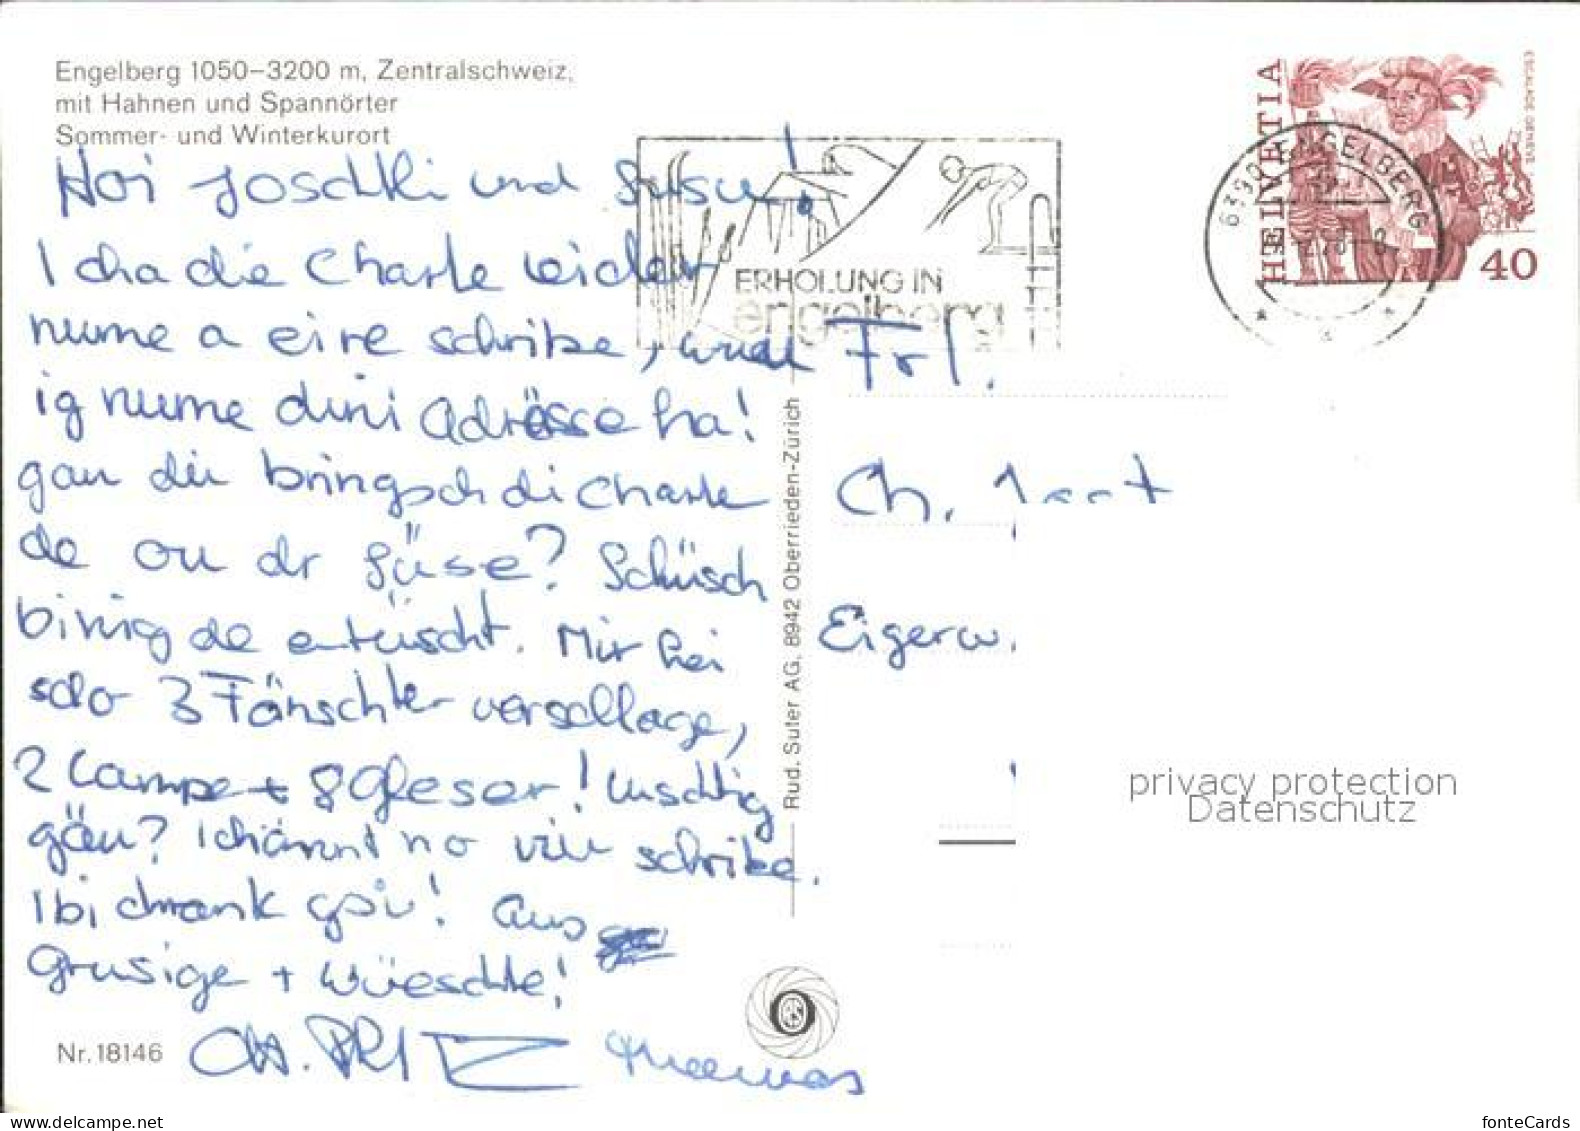 Engelberg 1050–3200 m, Zentralschweiz,
mit Hahnen und Spannörter
Sommer- und Winterkurort
Hoi Joschki und Susu!
I cha die Charte leider
nume a eire schribe, weu
ig nume dini Adrässe ha!
gäu du bringsch di Charte
de ou dr Süse?
binig de entüscht. Mir hei
scho 3 Fänschter verschlage,
2 Lampe + 8 Gleser! Luschtig
gäu? I chönnt no viu schribe.
I bi chrank gsi! Aus
Grusige + Wüeschte!
Thomas
Nr. 18146
ERHOLUNG IN
engelberg
Rud. Suter AG, 8942 Oberrieden-Zürich
HELVETIA
ESCALADE GENEVE
40
6390 ENGELBERG
Frl.
Ch.
Eigerw.
privacy protection
Datenschutz
fonteCards